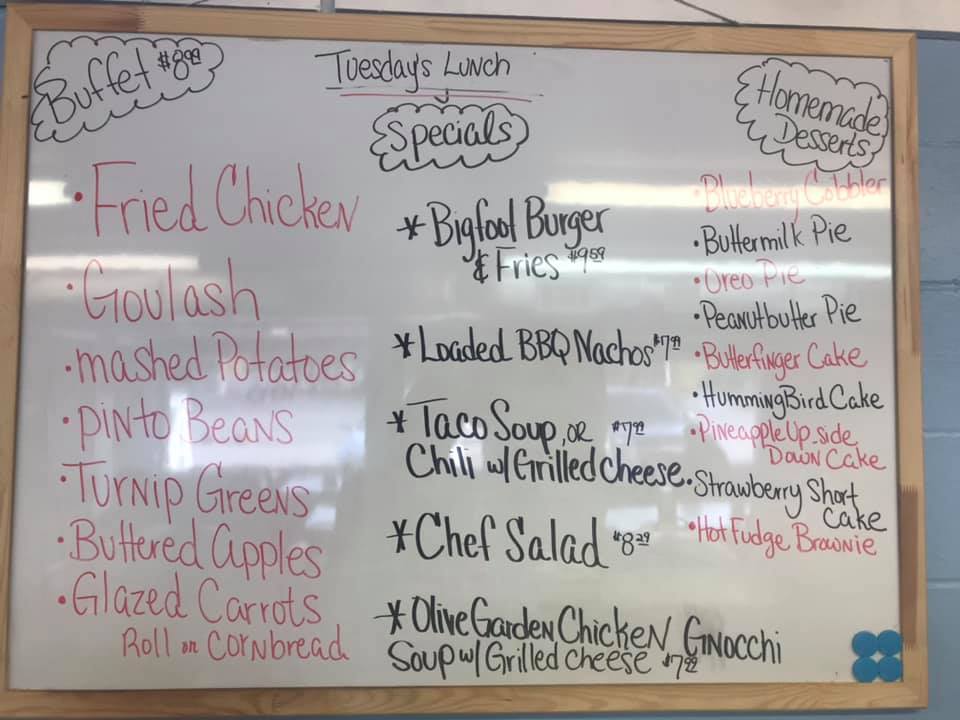 Buffet $8.99
• Fried Chicken
• Goulash
• mashed Potatoes
• pinto Beans
• Turnip Greens
• Buttered apples
• Glazed Carrots
Roll or cornbread
Tuesday's Lunch
Specials
* Bigfoot Burger
& Fries $9.59
* Loaded BBQ Nachos $7.99
* Taco Soup, or $7.99
Chili w/ Grilled cheese
* Chef Salad $8.29
* Olive Garden Chicken Gnocchi
Soup w/ Grilled cheese $7.99
Homemade
Desserts
• Blueberry Cobbler
• Buttermilk Pie
• Oreo Pie
• Peanutbutter Pie
• Butterfinger Cake
• HummingBird Cake
• Pineapple Up-side
Down Cake
• Strawberry Short
Cake
• Hot Fudge Brownie